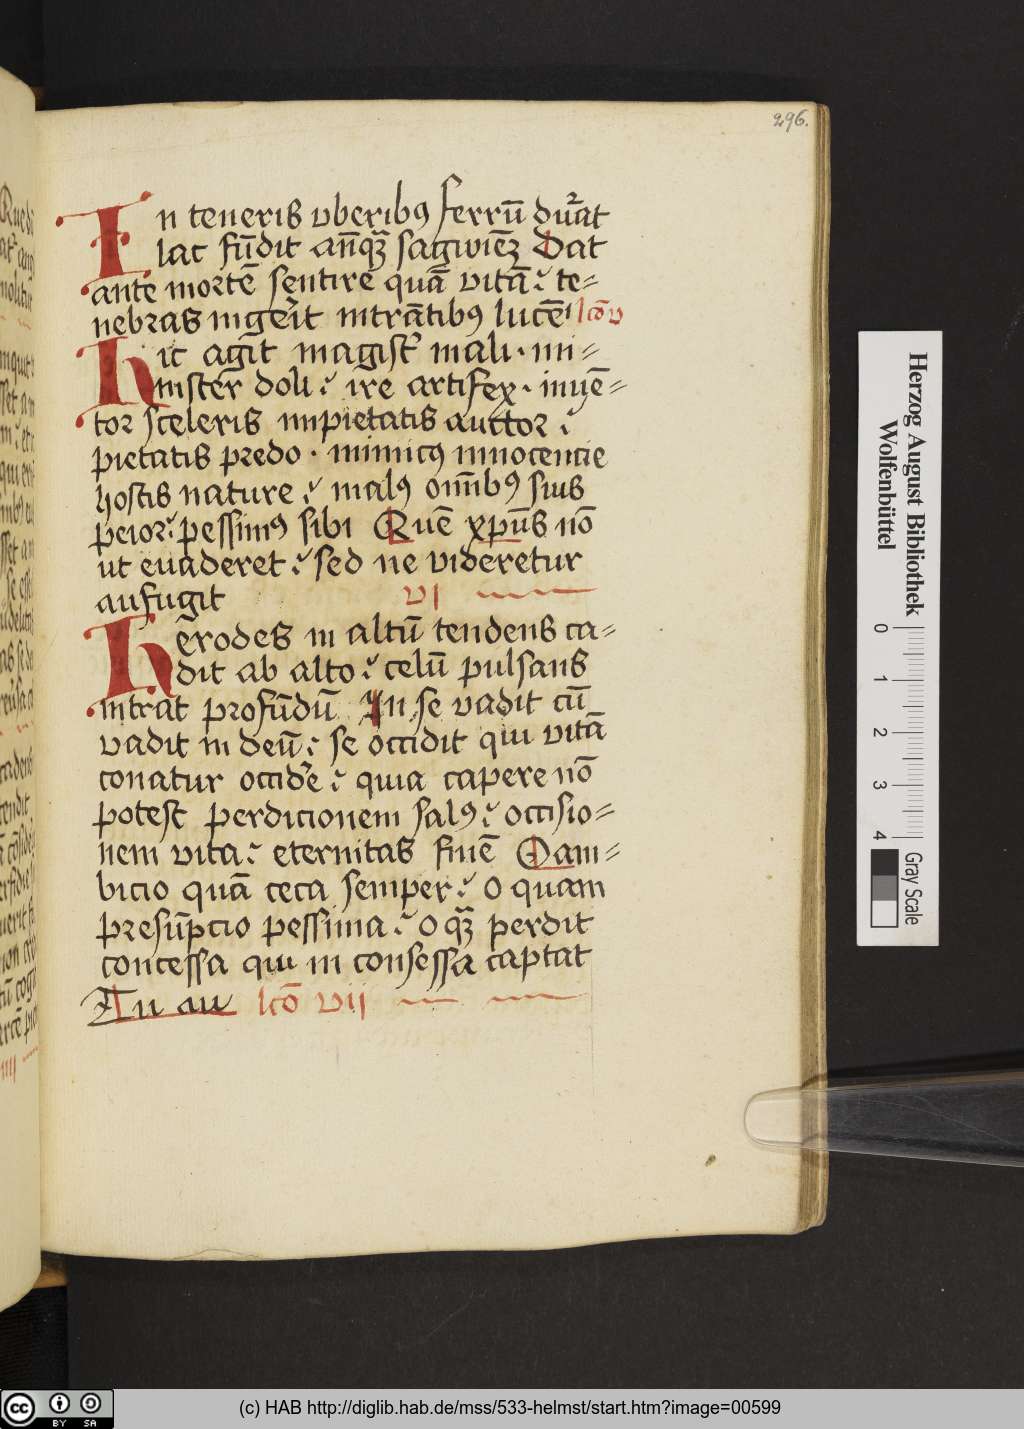 296.
In teneris vberibꝯ ferrū durat
lac fūdit an̄qꝫ sagwiēꝫ Dat
ante mortē sentire quā vitā: te=
nebras ingerit intrātibꝯ lucē lcō v
Hic agit magist' mali · mi=
nister doli : ire artifex · inuē=
tor sceleris impietatis auctor :
pietatis predo · inimicꝯ innocencie
hostis nature : malꝯ om̄ibꝯ suis
peior: pessimꝯ sibi Quē xp̄us nō
ut euaderet : sed ne videretur
aufugit vi
Herodes in altū tendens ca=
dit ab alto : celū pulsans
intrat profūdū In se vadit cū
vadit in deū : se occidit qui vitā
conatur occid'e : quia capere nō
potest perdicionem salꝯ : occisio=
nem vita : eternitas finē O am=
bicio quā ceca semper : o quam
presūpcio pessima : o qꝫ perdit
concessa qui in consessa captat
Tu au lcō vii
Herzog August Bibliothek
Wolfenbüttel
0 1 2 3 4
Gray Scale
cc BY SA
(c) HAB http://diglib.hab.de/mss/533-helmst/start.htm?image=00599